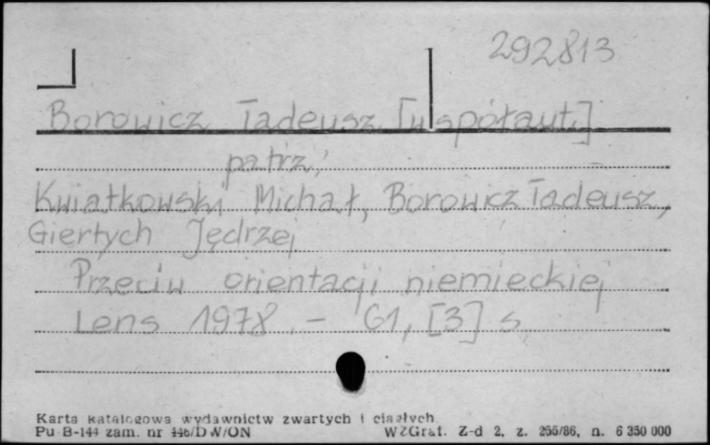 292813
Borowicz Tadeusz [współaut.]
patrz:
Kwiatkowski Michał, Borowicz Tadeusz,
Giertych Jędrzej
Przeciw orientacji niemieckiej
Lens 1978. – 61, [3] s.
Karta katalogowa wydawnictw zwartych i ciągłych
Pu B-144 zam. nr 446/DW/ON WZGraf. Z-d 2, z. 255/86, n. 6 350 000